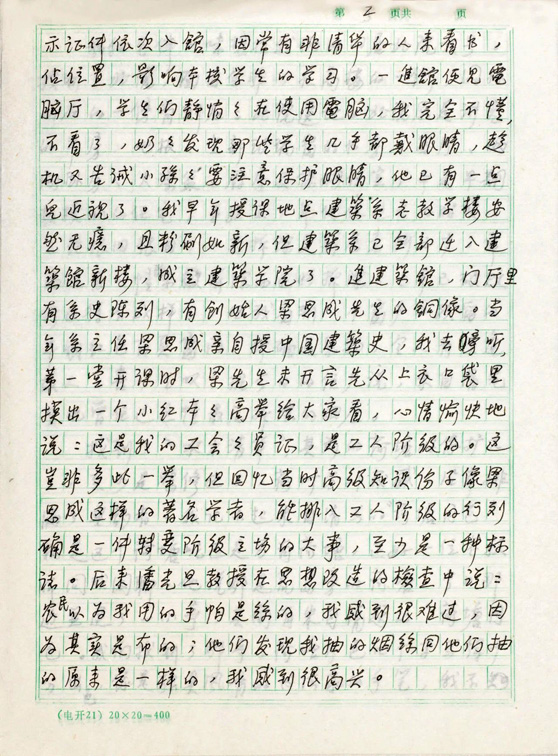 第 2 页共 页
示证件依次入館，因常有非清华的人来看书，
佔位置，影响本校学生的学习。一進館便見電
脑厅，学生们静悄々在使用電脑，我完全不懂，
不看了，奶々发现那些学生几乎都戴眼睛，趁
机又告诫小孫々要注意保护眼睛，他已有一点
兒近視了。我早年授课地点建築系老教学楼安
然无恙，且粉刷如新，但建築系已全部迁入建
築館新楼，成立建築学院了。進建築館，门厅里
有系史陈列，有创始人梁思成先生的銅像。当
年系主任梁思成亲自授中国建築史，我去聽听，
第一堂开课时，梁先生未开言先从上衣口袋里
摸出一个小红本々高举给大家看，心情愉快地
说：这是我的工会々员证，是工人阶级的。这
豈非多此一举，但回忆当时高级知识份子像梁
思成这样的著名学者，能排入工人阶级的行列
确是一件转变阶级立场的大事，至少是一种标
誌。后来潘光旦教授在思想改造的檢查中说：
农民以为我用的手帕是綈的，我感到很难过，因
为其实是布的；他们发现我抽的烟絲同他们抽
的原来是一样的，我感到很高兴。
(电开21) 20×20=400